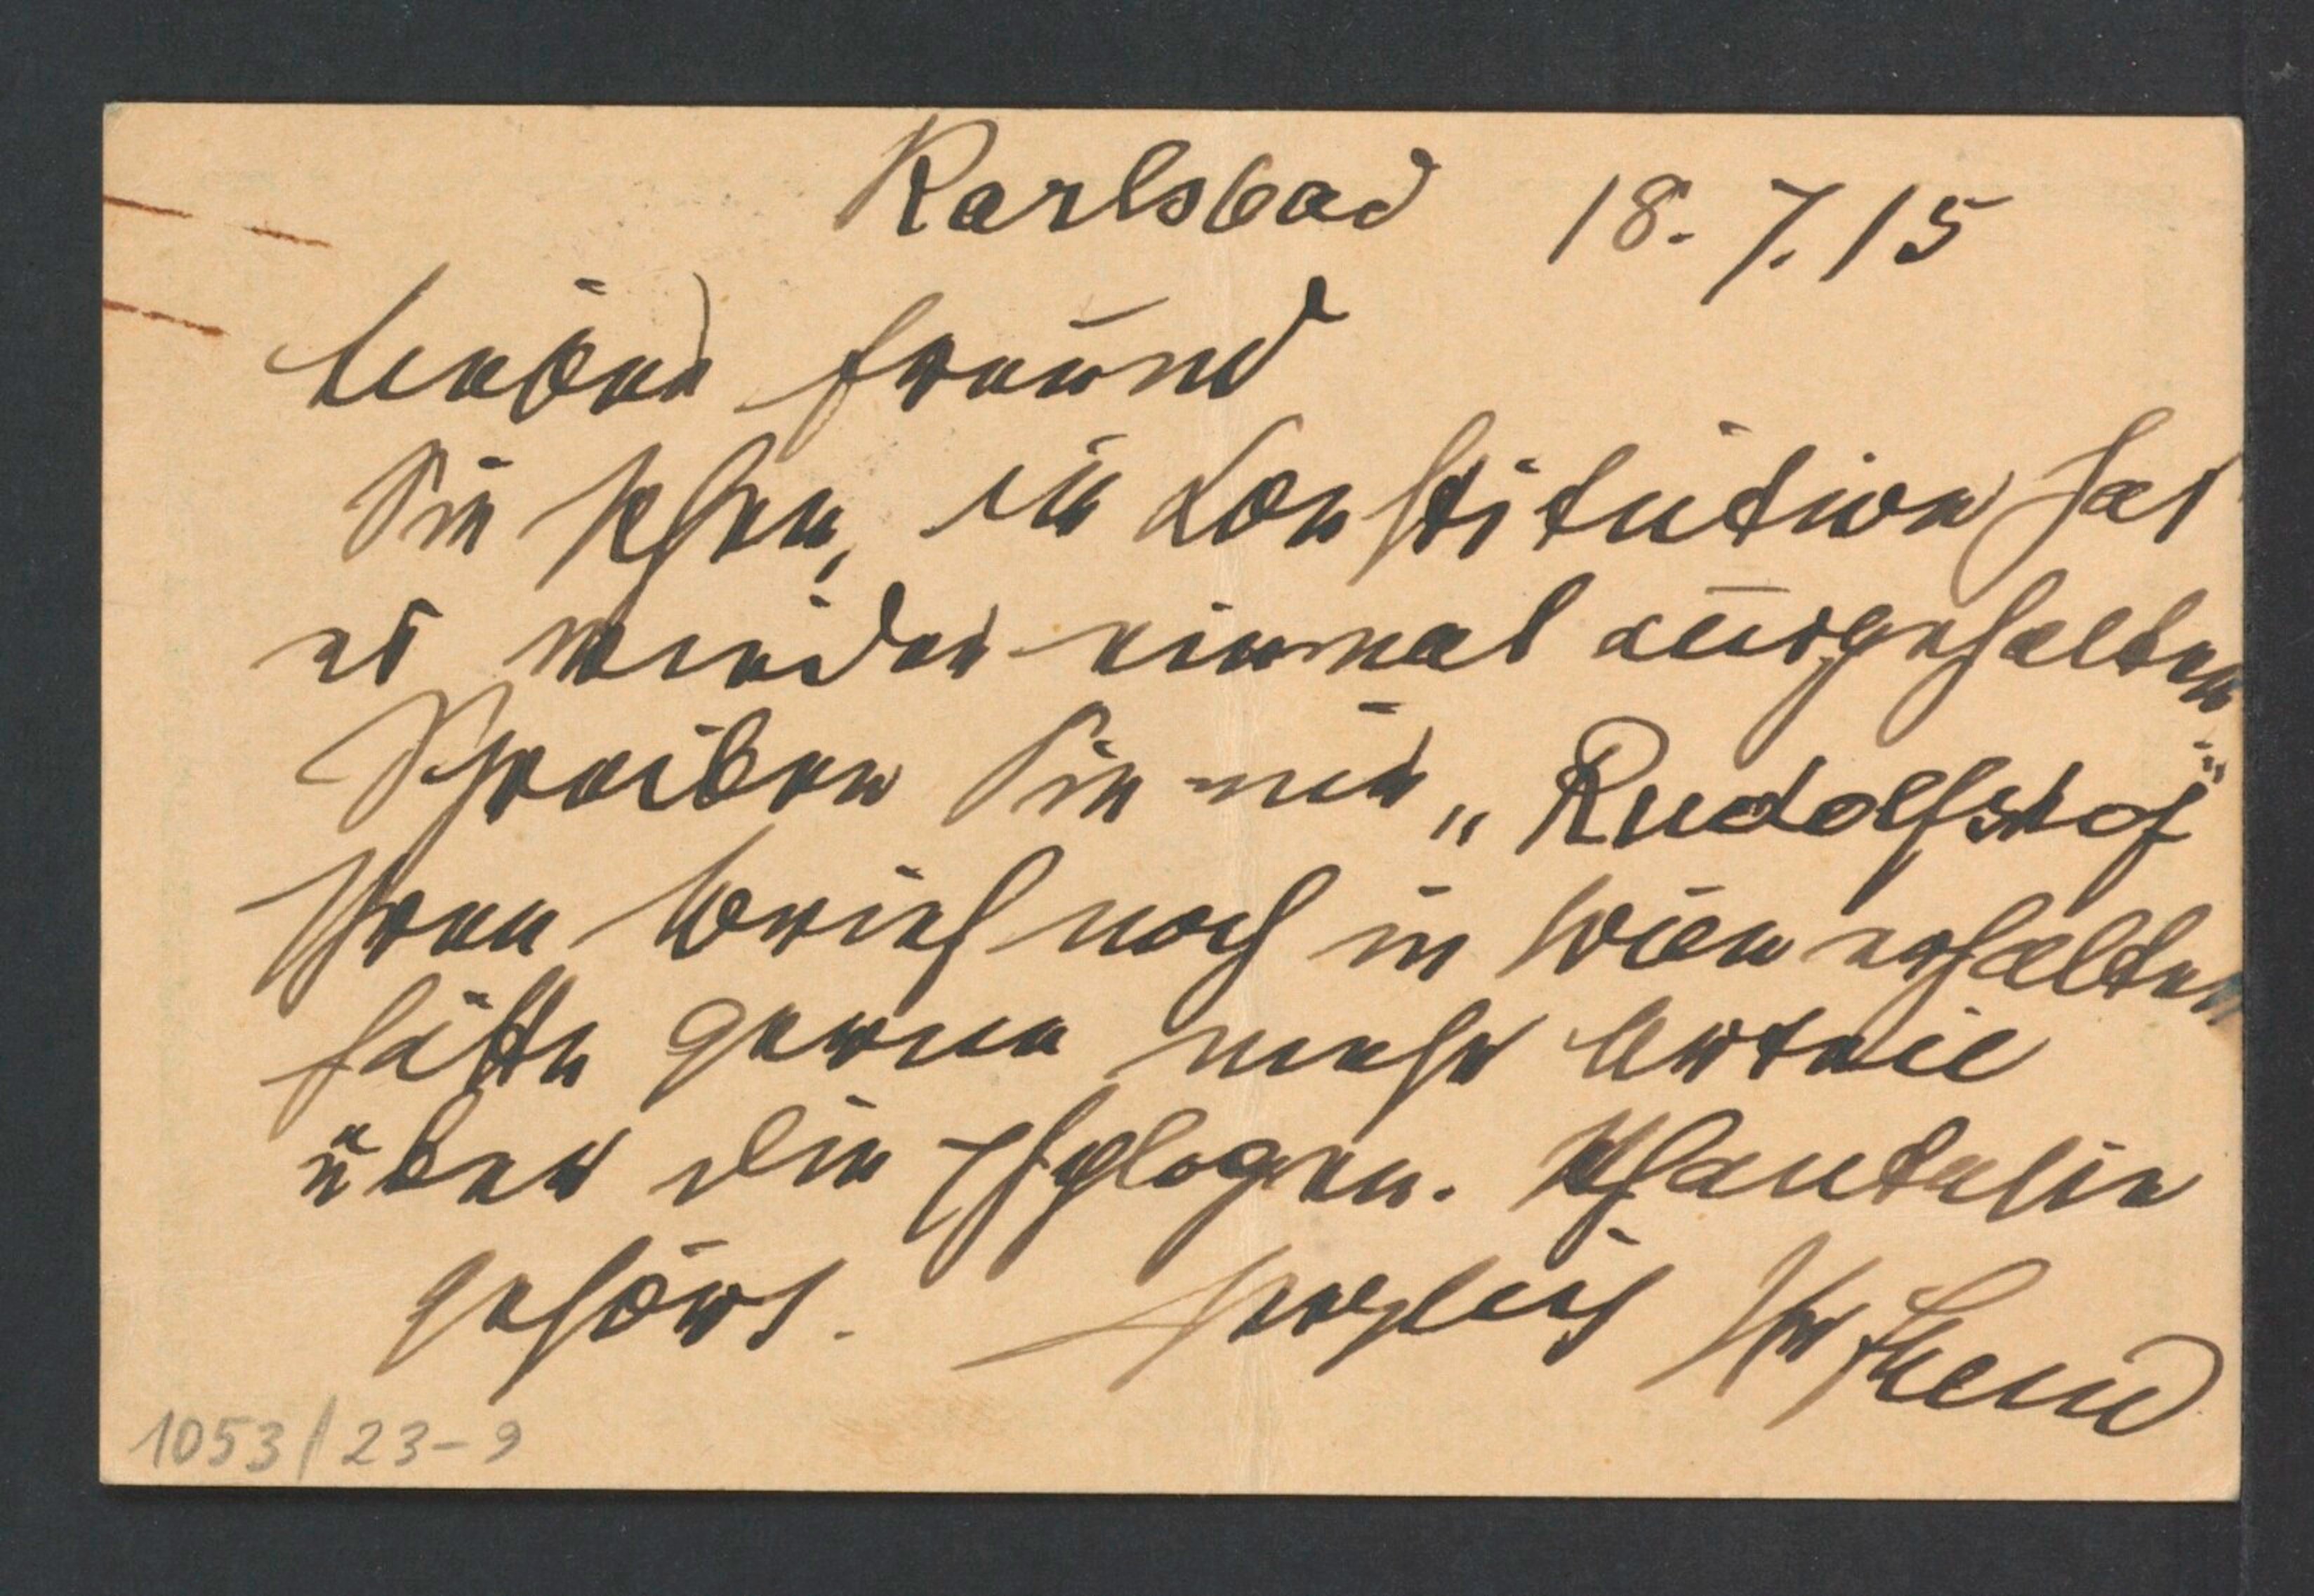 Karlsbad 18.7.15
Lieber Freund
Sie sehen, die Konstitution hat
es wieder einmal ausgehalten
Schreiben Sie mir „Rudolfshof“
Ihren Brief noch in Wien erhalten
hätte gerne mehr Urteil
über die phylogen. Phantasie
gehört. Herzlich Ihr Freud
1053/23-9